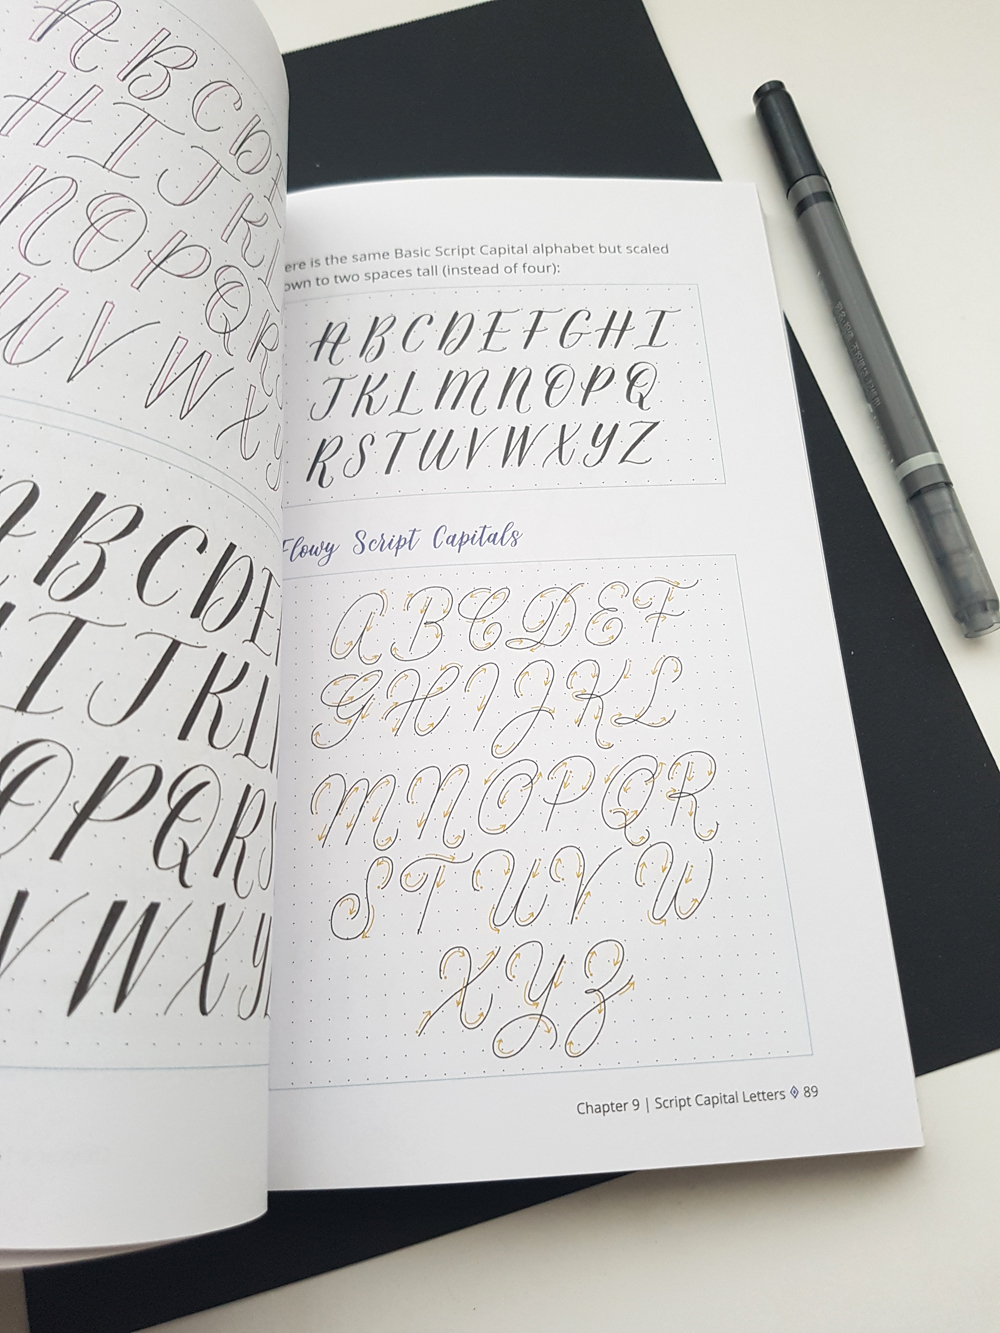 A B C D
H I J K
N O P Q R
U V W X Y
A B C D E
I J K L
O P Q R S
V W X Y
ere is the same Basic Script Capital alphabet but scaled
own to two spaces tall (instead of four):
A B C D E F G H I
J K L M N O P Q
R S T U V W X Y Z
Flowy Script Capitals
A B C D E F
G H I J K L
M N O P Q R
S T U V W
X Y Z
Chapter 9 | Script Capital Letters 89